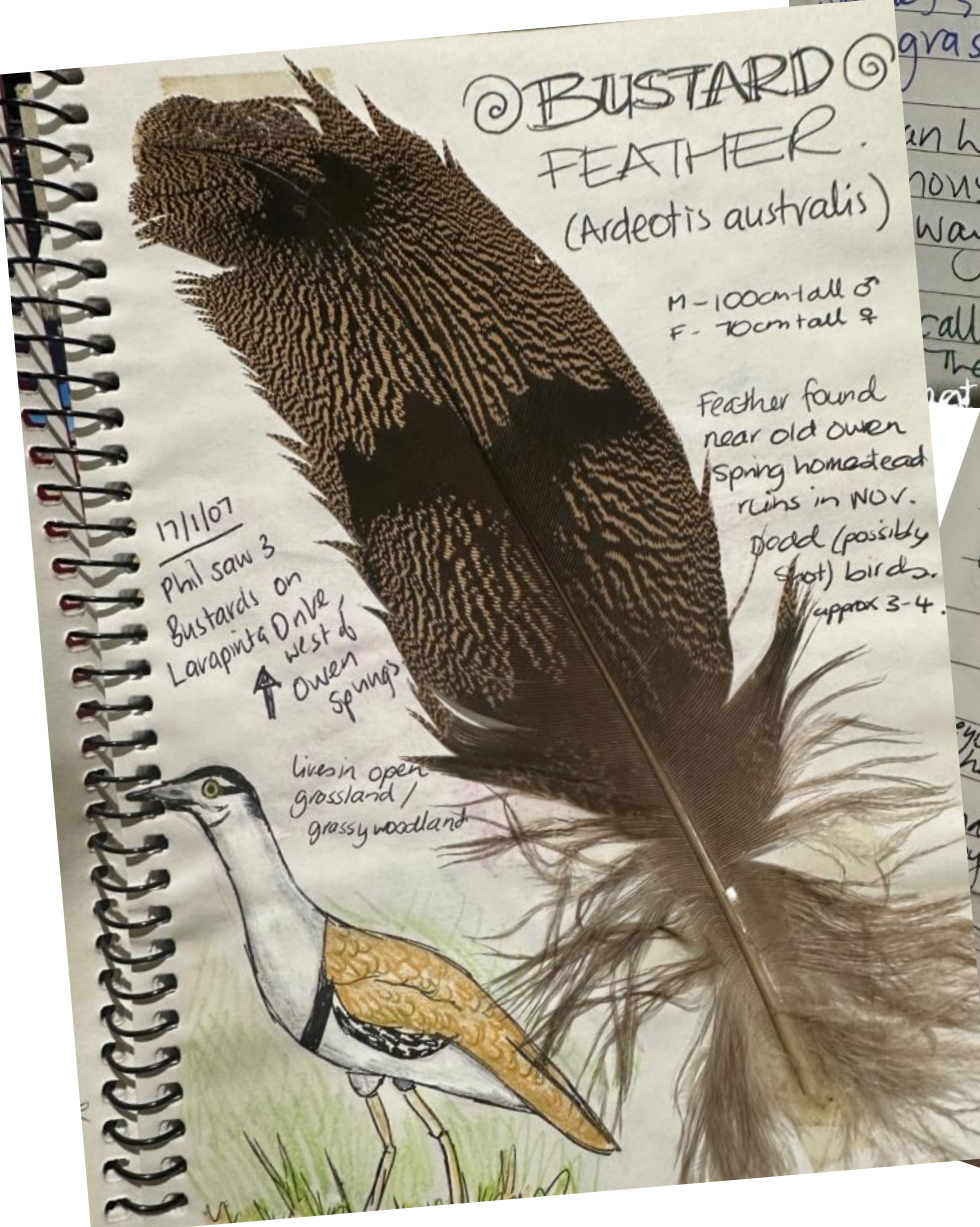 BUSTARD
FEATHER.
(Ardeotis australis)
M - 100cm tall ♂
F - 70cm tall ♀
Feather found
near old owen
spring homestead
ruins in NOV.
Dead (possibly
shot) birds.
approx 3-4.
17/1/07
Phil saw 3
Bustards on
Larapinta Drive,
west of
Owen
Springs
lives in open
grassland /
grassy woodland
gras
an h
way
call
The